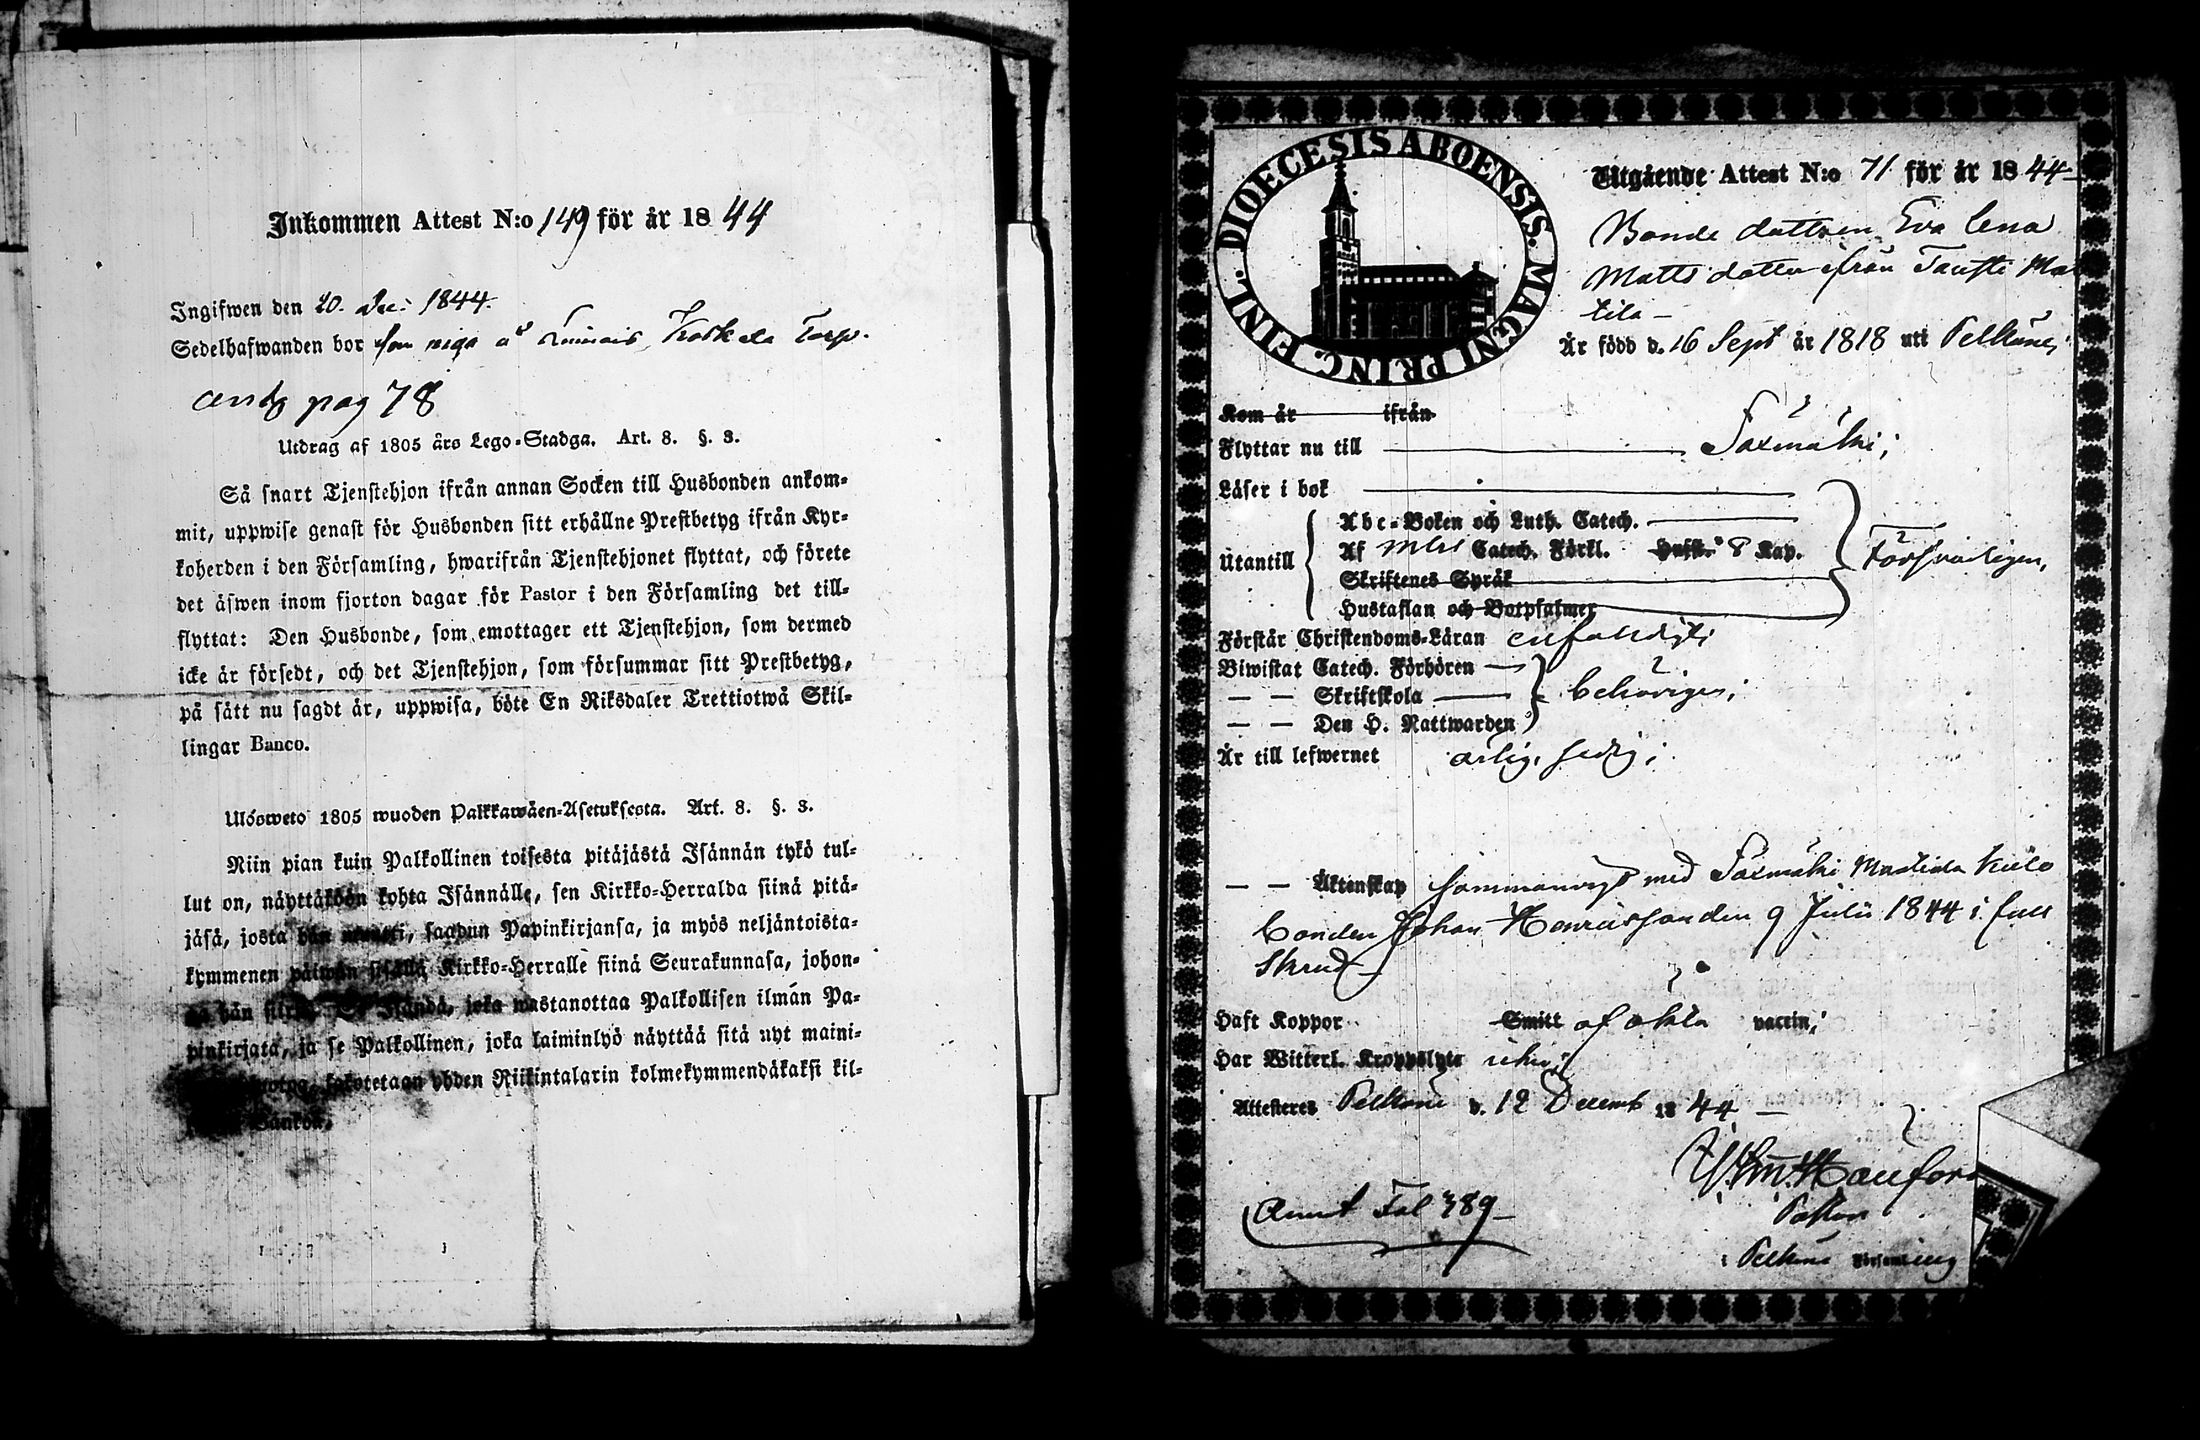 Inkommen Attest N:o 149 för år 1844
Ingifwen den 20. Dec: 1844.
Sedelhafwanden bor som piga å Koskela Torp.
antg pag 78
Utdrag af 1805 års Lego-Stadga. Art. 8. §. 3.
Så snart Tjenstehjon ifrån annan Socken till Husbonden ankom-
mit, uppwise genast för Husbonden sitt erhållne Prestbetyg ifrån Kyr-
koherden i den Församling, hwarifrån Tjenstehjonet flyttat, och förete
det äfwen inom fjorton dagar för Pastor i den Församling det till-
flyttat: Den Husbonde, som emottager ett Tjenstehjon, som dermed
icke är försedt, och det Tjenstehjon, som försummar sitt Prestbetyg,
på sätt nu sagdt är, uppwisa, böte En Riksdaler Trettiotwå Skil-
lingar Banco.
Ulösweto 1805 wuoden Palkkawäen-Asetuksesta. Art. 8. §. 3.
Niin pian kuin Palkollinen toisesta pitäjästä Isännän tykö tul-
lut on, näyttäköön kohta Isännälle, sen Kirkko-Herralda siinä pitä-
jäsä, josta hän muutti, saadun Papinkirjansa, ja myös neljäntoista-
kymmenen päiwän sisällä Kirkko-Herralle siinä Seurakunnasa, johon-
ga hän siirtyi: Isändä, joka wastanottaa Palkollisen ilmán Pa-
pinkirjata, ja se Palkollinen, joka laiminlyö näyttää sitä nyt maini-
sakotetaan yhden Riikintalarin kolmekymmendäkaksi kil-
Bankoa.
DIOECESIS ABOENSIS. MAGNI PRINC. FINL.
Utgående Attest N:o 71 för år 1844
Bonde dottren Eva Lena
Matts dotter ifrån Tausti Mat
tila
Är född d. 16 Sept år 1818 uti Pelkäne;
Kom år ifrån
Flyttar nu till Säxmäki;
Läser i bok
Utantill
Abc-Boken och Luth. Catech.
Af Catech. Förkl. Husst. 8 Kap.
Skriftenes Språk
Hustaflan och Botpsalmer
Försvarligen,
Förstår Christendoms-Läran enfaldigt;
Biwistat Catech. Förhören
— — Skriftskola behörigen;
— — Den H. Nattwarden
Är till lefwernet ärlig, sedig;
— — Äktenskap sammanvigd med Säxmäki Mattila Kulo
bonden Johan Henricsson den 9 Julii 1844 i full
Skrud
Haft Koppor Smitt af äkta vaccin;
Har Witterl. Kroppslyte icke;
Attesteres Pelkäne d. 12 Decemb 1844
Pastor
i Pelkäne Församling
Annot Fol 389